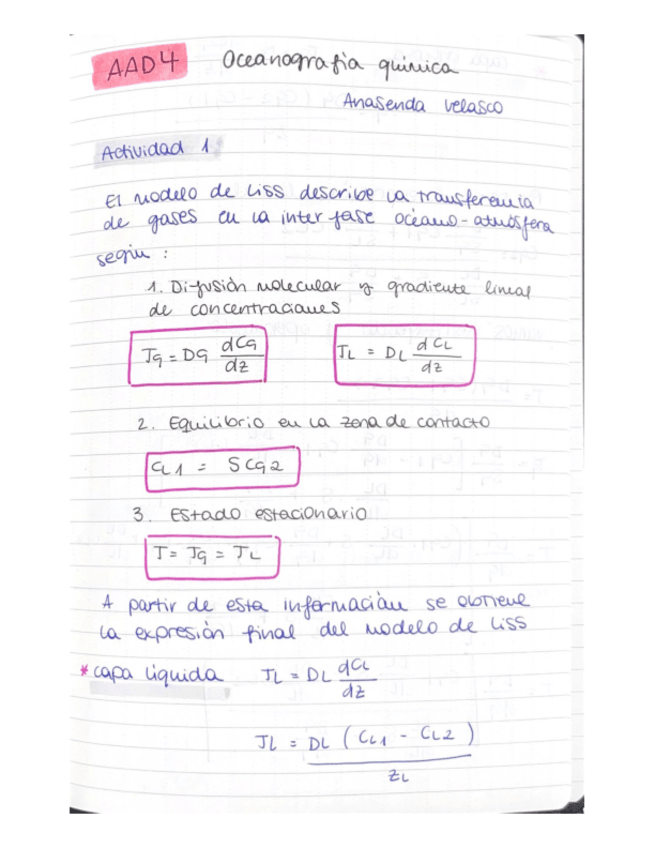 AAD4 Oceanografia quimica
Anasenda Velasco
Actividad 1
El modelo de Liss describe la transferencia
de gases en la interfase océano-atmósfera
según :
1. Difusión molecular y gradiente lineal
de concentraciones
Jg = Dg dCg/dz JL = DL dCL/dz
2. Equilibrio en la zona de contacto
CL1 = SCg2
3. Estado estacionario
J = Jg = JL
A partir de esta información se obtiene
la expresión final del modelo de Liss
* capa líquida JL = DL dCL/dz
JL = DL (CL1 - CL2)/ZL